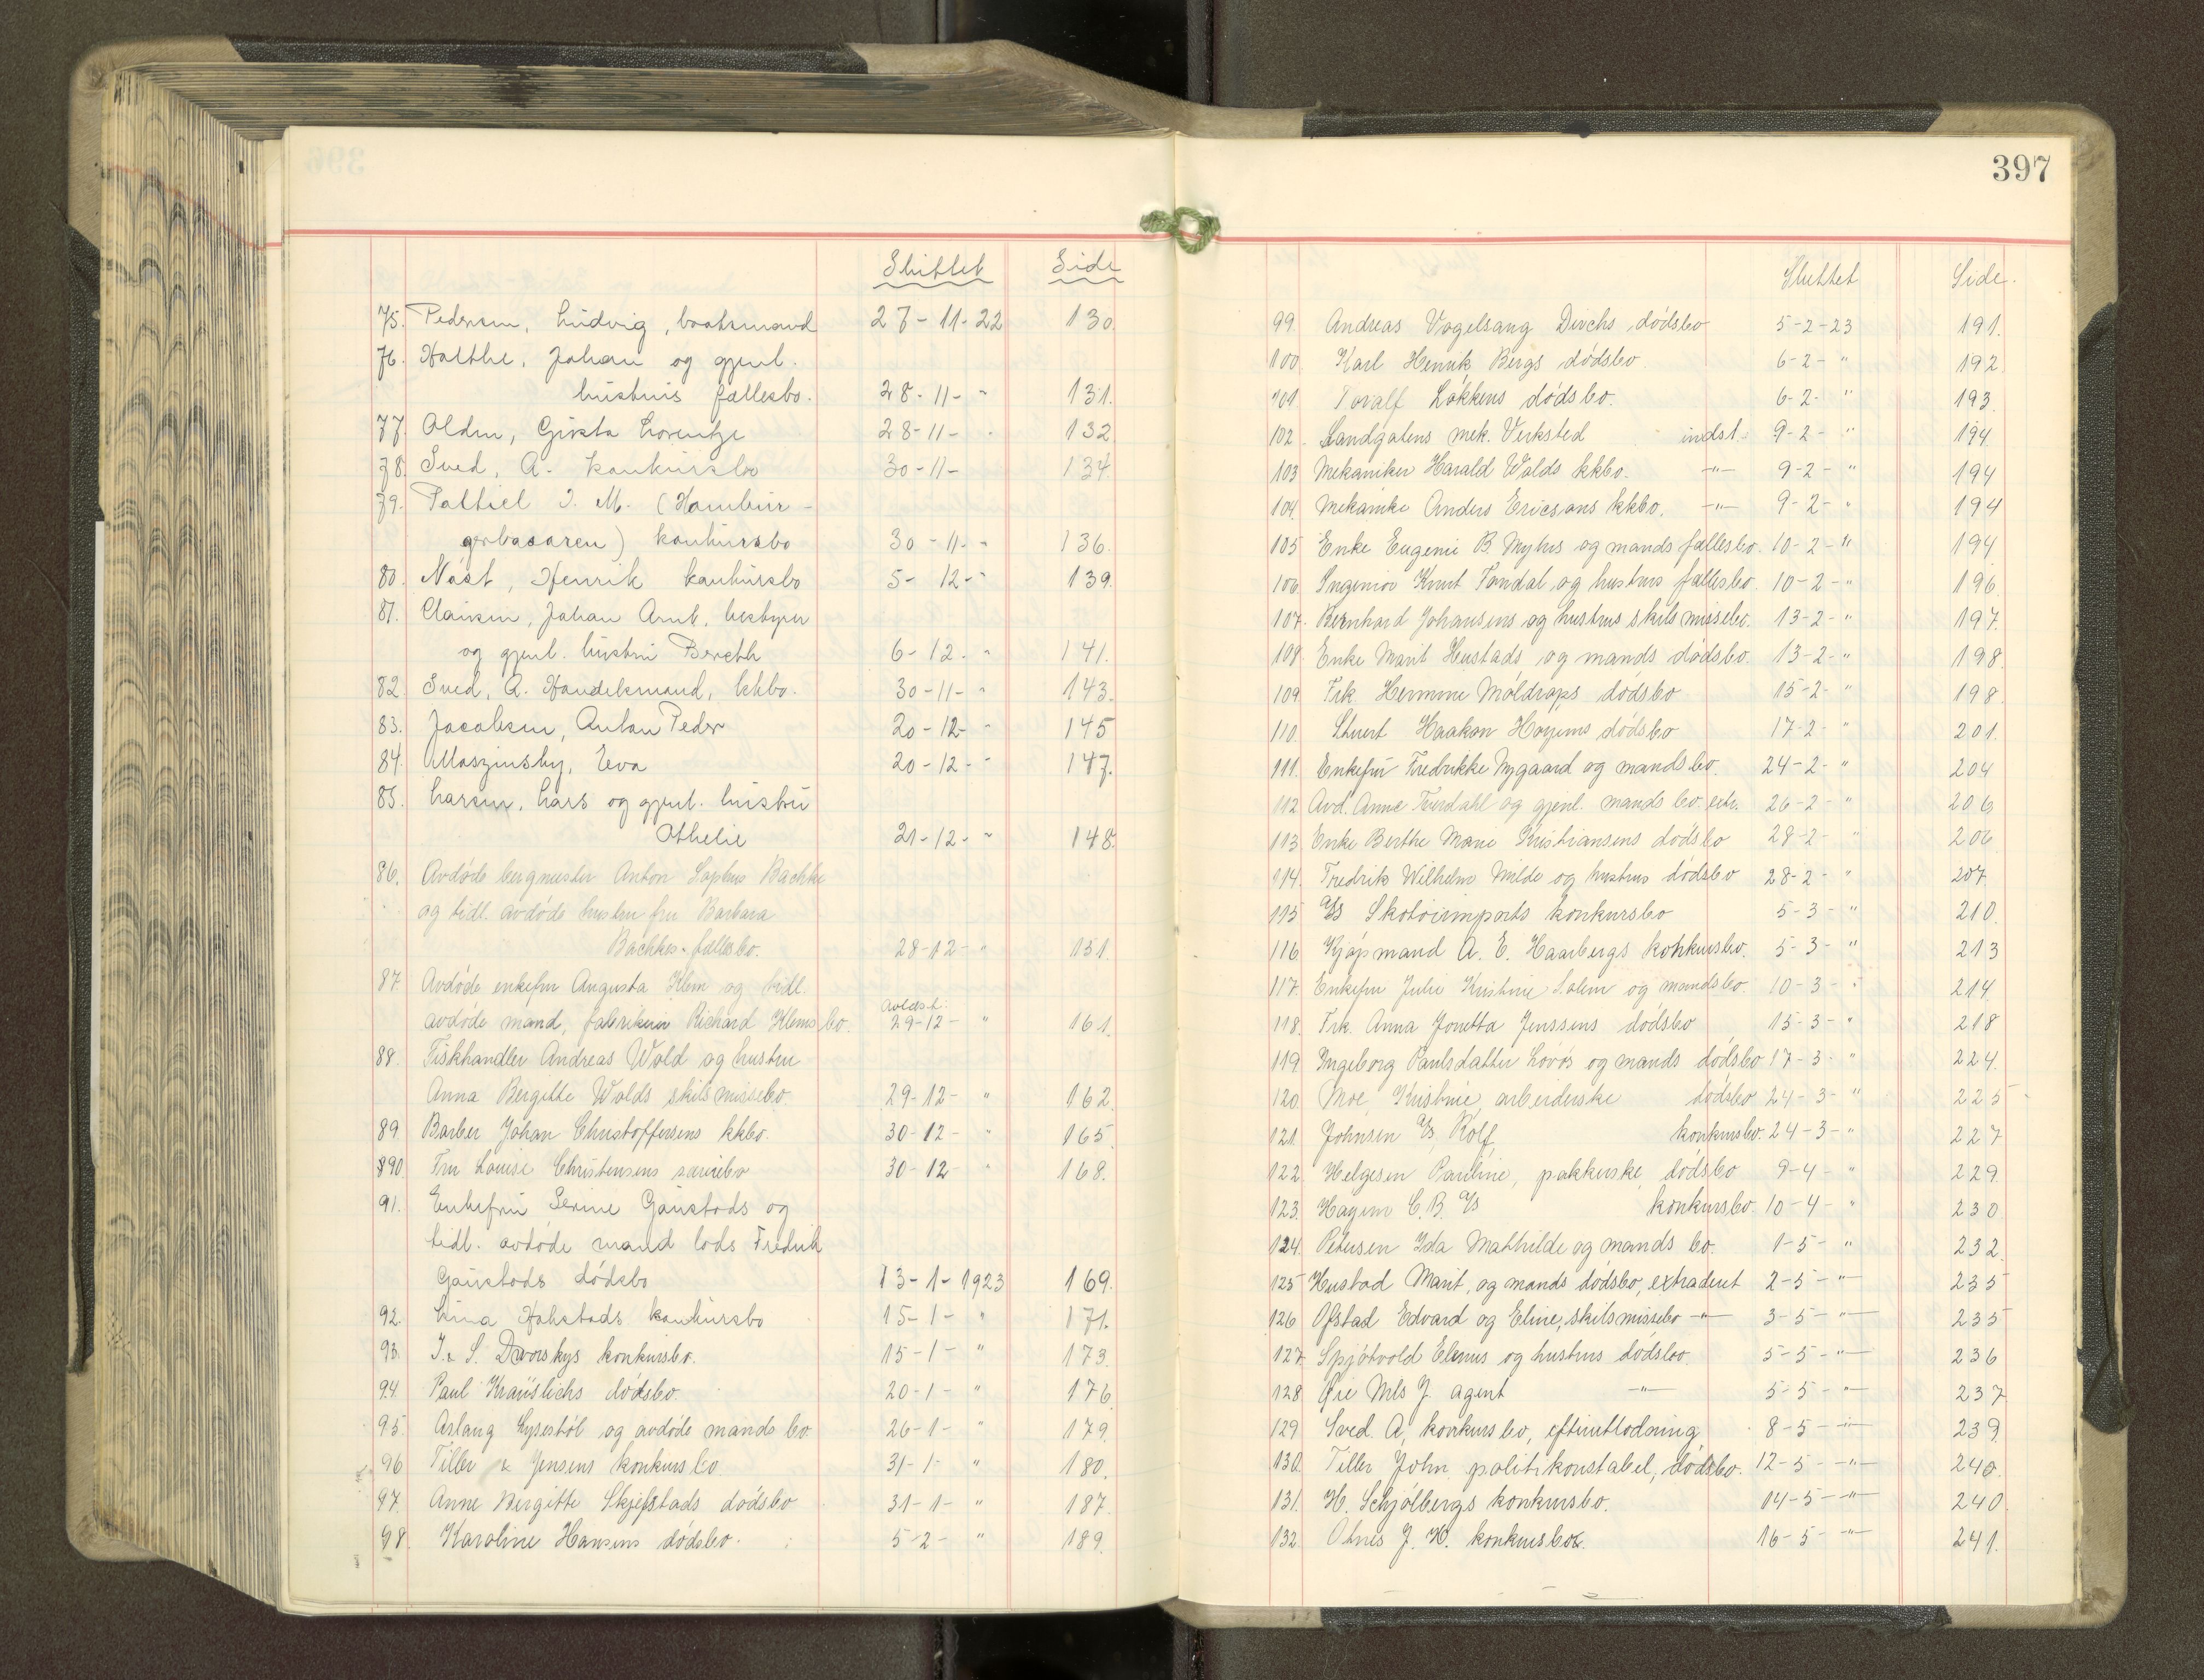 397
Sluttet Side
75. Pedersen, Ludvig, baatsmand 27-11-22 130.
76. Holthe, Johan og gjenl.
hustrus fællesbo. 28-11- " 131.
77. Olden, Girsta Lorentze 28-11- 132
78. Sved, A. konkursbo 30-11- 134.
79. Paltiel I. M. (Hambur-
gerbasaren) konkursbo 30-11- " 136.
80. Nøst, Henrik konkursbo 5-12- " 139.
81. Clausen, Johan Arnt, bestyrer
og gjenl. hustru Bereth 6-12- " 141.
82. Sved, A. Handelsmand, kkbo. 30-11- " 143.
83. Jacobsen, Anton Peder 20-12- 145
84. Maszinsky, Eva 20-12- " 147.
85. Larsen, Lars og gjenl. hustru
Othelie 21-12- " 148.
86. Avdøde bergmester Anton Sophus Bachke
og tidl. avdøde hustru fru Barbara
Bachkes fællesbo. 28-12- " 151.
87. Avdøde enkefru Augusta Klem og tidl.
avdøde mand, fabrikeier Richard Klems bo. 29-12- " 161.
88. Fiskhandler Andreas Wold og hustru
Anna Bergitte Wolds skilsmissebo 29-12- " 162.
89. Barber Johan Christoffersens kkbo. 30-12- " 165.
90. Fru Louise Christensens særeiebo 30-12- " 168.
91. Enkefru Serine Gaustads og
tidl. avdøde mand lods Fredrik
Gaustads dødsbo 13-1-1923 169.
92. Lina Hohstads konkursbo 15-1- " 171.
93. I. & S. Dworskys konkursbo. 15-1- " 173.
94. Paul Kräuslichs dødsbo 20-1- " 176.
95. Aslaug Lysestøl og avdøde mands bo 26-1- " 179.
96 Tiller & Jensens konkursbo 31-1- " 180.
97. Anne Bergitte Skjefstads dødsbo 31-1- " 187.
98. Karoline Hansens dødsbo. 5-2- " 189.
Sluttet Side.
99. Andreas Vogelsang Dirchs dødsbo 5-2-23 191.
100. Karl Henrik Bergs dødsbo. 6-2- " 192.
101 Toralf Løkkens dødsbo. 6-2- " 193.
102. Sandgatens mek. Verksted indst. 9-2- " 194.
103 Mekaniker Harald Wolds kkbo. -"- 9-2- " 194
104. Mekanike Anders Ericsons kkbo. -"- 9-2- " 194
105 Enke Eugenie B. Myhrs og mands fællesbo. 10-2- " 194
106. Ingeniør Knut Tondal og hustrus fællesbo. 10-2- " 196.
107. Bernhard Johansens og hustrus skilsmissebo. 13-2- " 197.
108. Enke Marit Hustads og mands dødsbo. 13-2- " 198.
109 Frk. Hermine Møldrops dødsbo 15-2- " 198.
110. Stuert Haakon Hoyems dødsbo 17-2- " 201.
111. Enkefru Fredrikke Nygaard og mands bo. 24-2- " 204
112 Avd. Anne Trerdahl og gjenl. mands bo. extr. 26-2- " 206
113 Enke Berthe Marie Kristiansens dødsbo 28-2- " 206
114. Fredrik Wilhelm Milde og hustrus dødsbo 28-2- " 207.
115 A/S Skotøiimports konkursbo 5-3- " 210.
116 Kjøpmand A. E. Haarbergs konkursbo. 5-3- " 213
117. Enkefru Julie Kristine Solem og mands bo. 10-3- " 214.
118. Frk. Anna Jonetta Jenssens dødsbo 15-3- " 218
119 Ingeborg Paulsdatter Løvøs og mands dødsbo 17-3- " 224.
120. Moe, Kristine, arbeiderske dødsbo 24-3- " 225
121. Johnsen A/S, Rolf, konkursbo. 24-3- " 227
122. Helgesen Pauline, pakkerske, dødsbo 9-4- " 229.
123. Hagem C. B. A/S konkursbo. 10-4- " 230
124. Petersen Ida Mathilde og mands bo. 1-5- " 232.
125 Hustad Marit, og mands dødsbo, extradert 2-5-"- 235
126 Ofstad Edvard og Eline, skilsmissebo -"- 3-5-"- 235
127. Spjøtvold Elenus og hustrus dødsbo. 5-5-"- 236
128. Øie Nils J. agent -"- 5-5-"- 237.
129 Sved. A, konkursbo, efterutlodning 8-5-"- 239.
130. Tiller John, politikonstabel, dødsbo. 12-5-"- 240.
131. H. Schjølbergs konkursbo. 14-5-"- 240.
132. Otnes J. H. konkursbo. 16-5-"- 241.